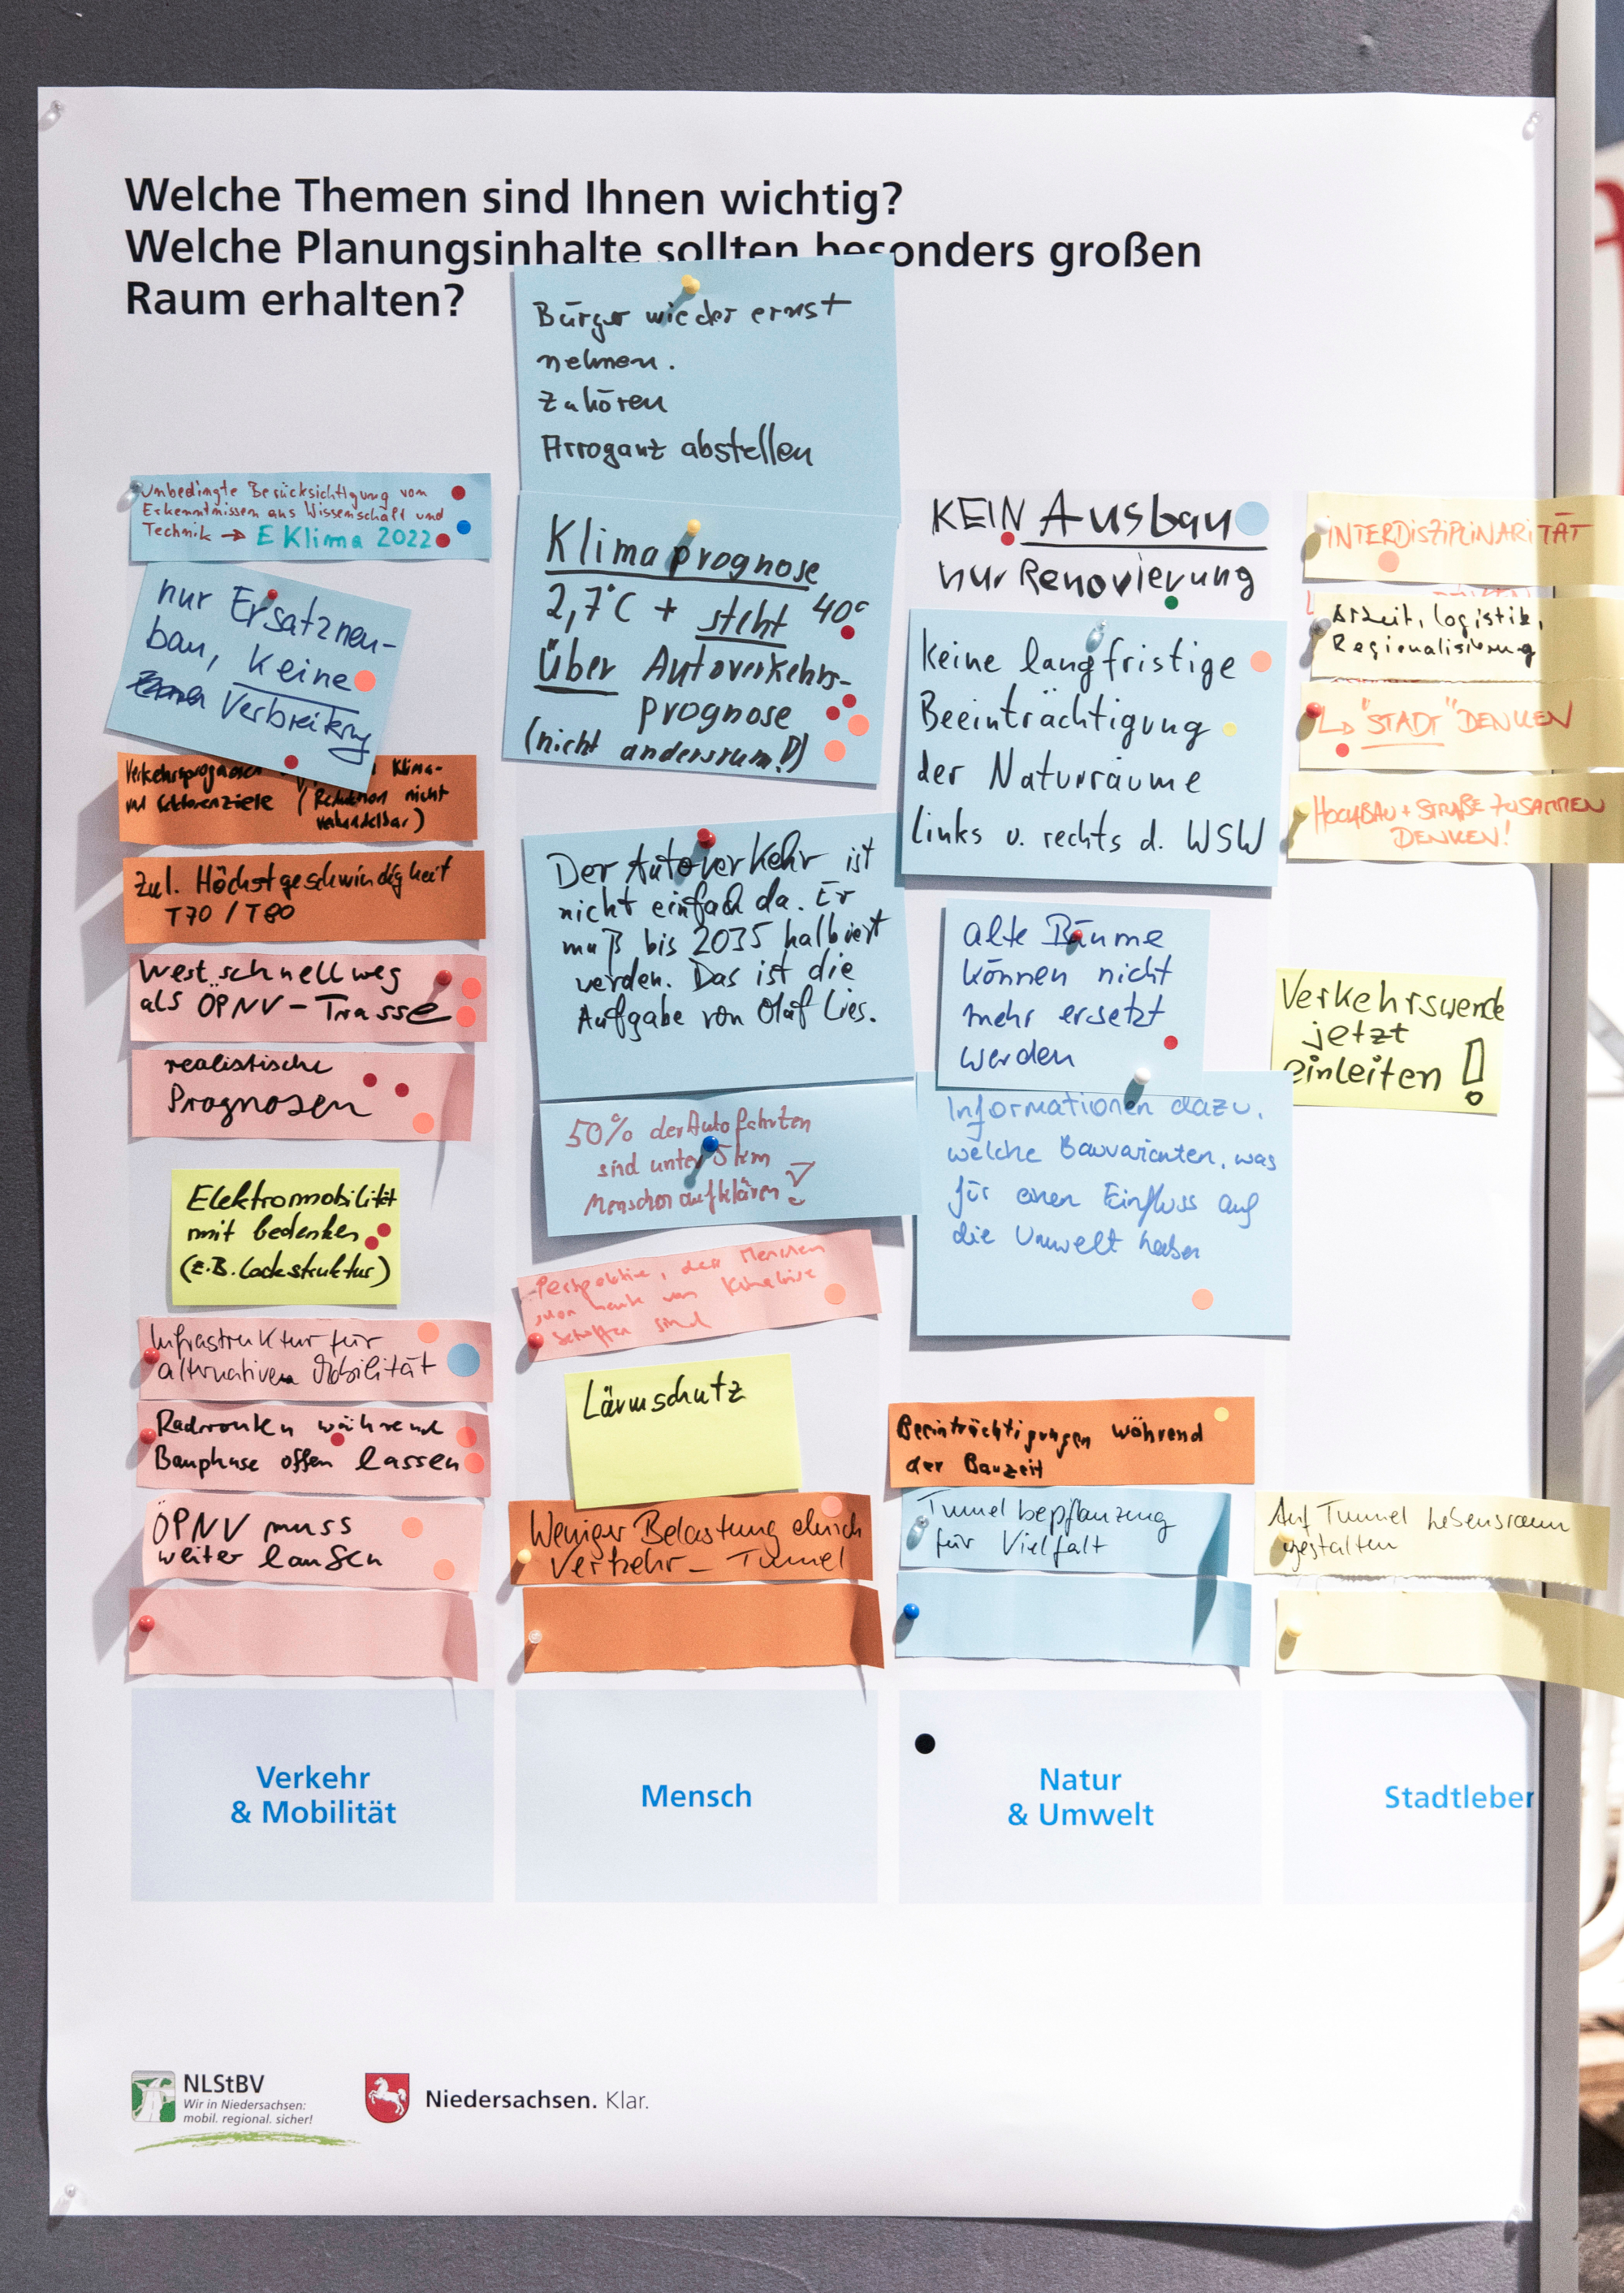 Welche Themen sind Ihnen wichtig?
Welche Planungsinhalte sollten besonders großen
Raum erhalten?
Unbedingte Berücksichtigung von
Erkenntnissen aus Wissenschaft und
Technik → E Klima 2022
nur Ersatzneu-
bau, keine
Verbreitrng
Verkehrsprognosen Klima-
und Sektorenziele (Reduktion nicht
verhandelbar)
Zul. Höchstgeschwindigkeit
T70 / T80
Westschnellweg
als ÖPNV-Trasse
realistische
Prognosen
Elektromobilität
mit bedenken
(z.B. Ladestruktur)
Infrastruktur für
alternativen Mobilität
Radrouten während
Bauphase offen lassen
ÖPNV muss
weiter laufen
Verkehr
& Mobilität
Bürger wieder ernst
nehmen.
Zuhören
Arroganz abstellen
Klimaprognose
2,7°C + steht 40°
Über Autoverkehrs-
prognose
(nicht andersrum!!)
Der Autoverkehr ist
nicht einfach da. Er
muß bis 2035 halbiert
werden. Das ist die
Aufgabe von Olaf Lies.
50% der Autofahrten
sind unter 5 km
Menschen aufklären!
Perspektive, der Menschen
von
sind
Lärmschutz
Weniger Belastung durch
Verkehr - Tunnel
Mensch
KEIN Ausbau
nur Renovierung
keine langfristige
Beeinträchtigung
der Naturräume
links u. rechts d. WSW
alte Bäume
können nicht
mehr ersetzt
werden
Informationen dazu,
welche Bauvarianten, was
für einen Einfluss auf
die Umwelt haben
Beeinträchtigungen während
der Bauzeit
Tunnel bepflanzung
für Vielfalt
Natur
& Umwelt
INTERDISZIPLINARITÄT
Arbeit, logistik,
Regionalisierung
↳ "STADT" DENKEN
HOCHBAU + STRAßE ZUSAMMEN
DENKEN!
Verkehrswende
jetzt
einleiten!
Auf Tunnel Lebensraum
gestalten
Stadtleben
NLStBV
Wir in Niedersachsen:
mobil. regional. sicher!
Niedersachsen. Klar.